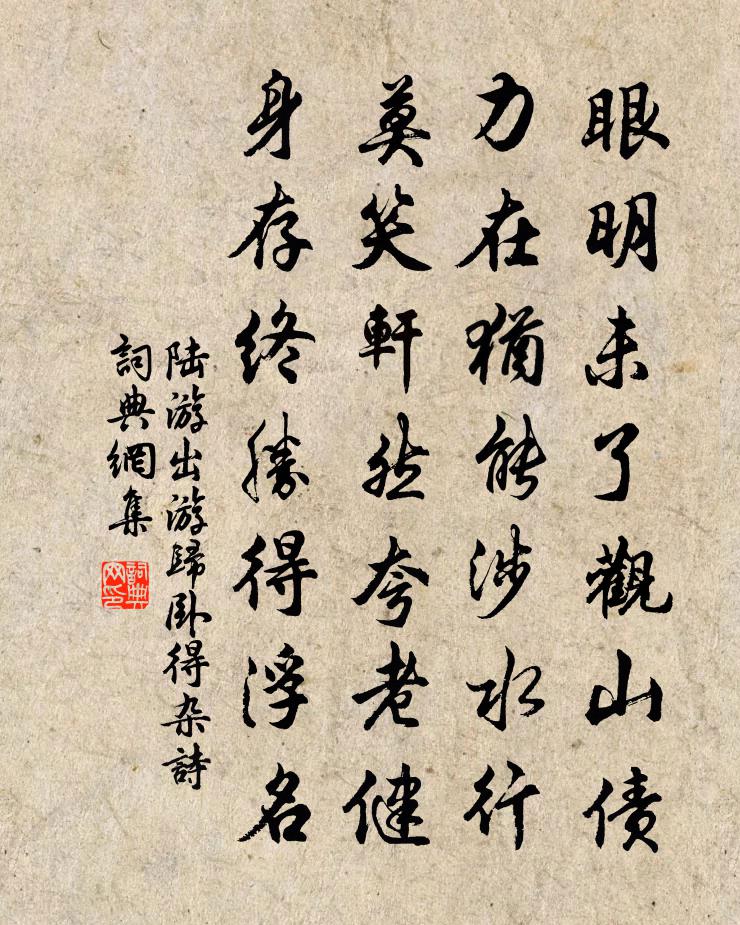 眼明未了觀山債
力在猶能涉水行
莫笑軒然夸老健
身存終勝得浮名
陆游出游歸臥得杂詩
詞典網集
詞典网印